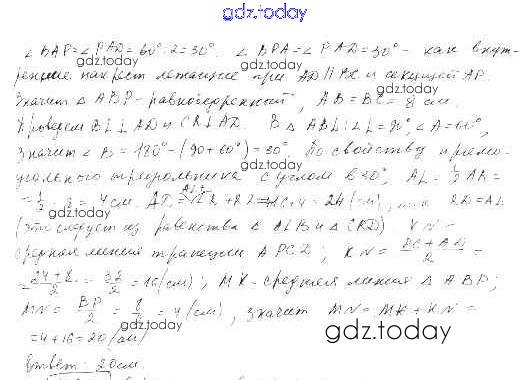 gdz.today
∠BAP=∠PAD=60°:2=30°. ∠BPA=∠PAD=30° - как внут-
ренние накрест лежащие при AD∥BC и секущей AP.
Значит △ABP - равнобедренный, AB=BC=8 см.
Проведем BL⊥AD и CR⊥AD. В △ABL: ∠L=90°, ∠A=60°,
gdz.today
значит ∠B=180°-(90+60°)=30°. По свойству прямо-
угольного треугольника с углом в 30°, AL=½AB=
=½·8=4 см. =16+4=24(см), т.к. RD=AL
gdz.today
(это следует из равенства △ALB и △CRD). KN -
средняя линия трапеции APCD; KN = =
= 24+8 / 2 = 32/2 = 16(см); MK - средняя линия △ABP;
gdz.today
MN = BP/2 = 8/2 = 4(см), значит MN=MK+KN=
gdz.today
=4+16=20(см)
gdz.today
Ответ: 20см.
gdz.today